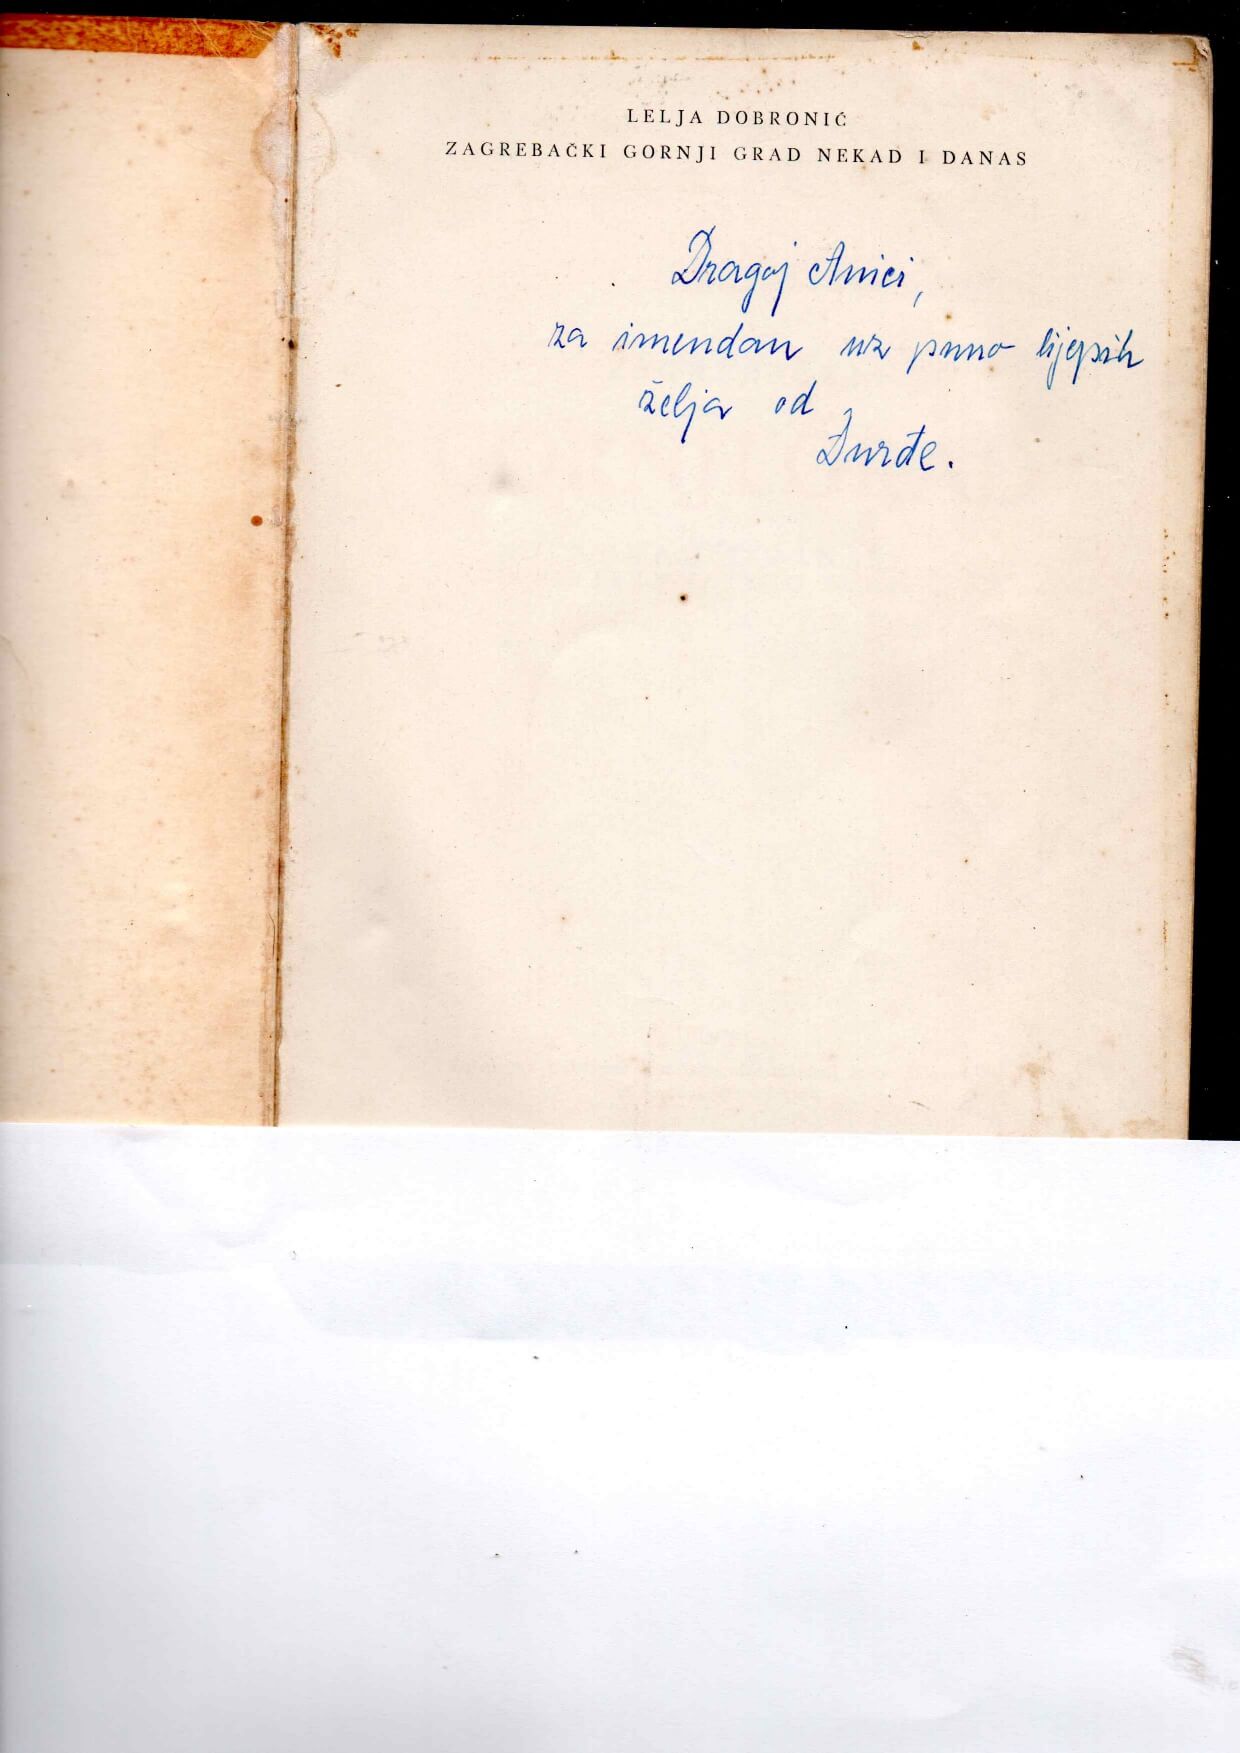 LELJA DOBRONIĆ
ZAGREBAČKI GORNJI GRAD NEKAD I DANAS
Dragoj Anici,
za imendan uz puno lijepih
želja od
Đurđe.